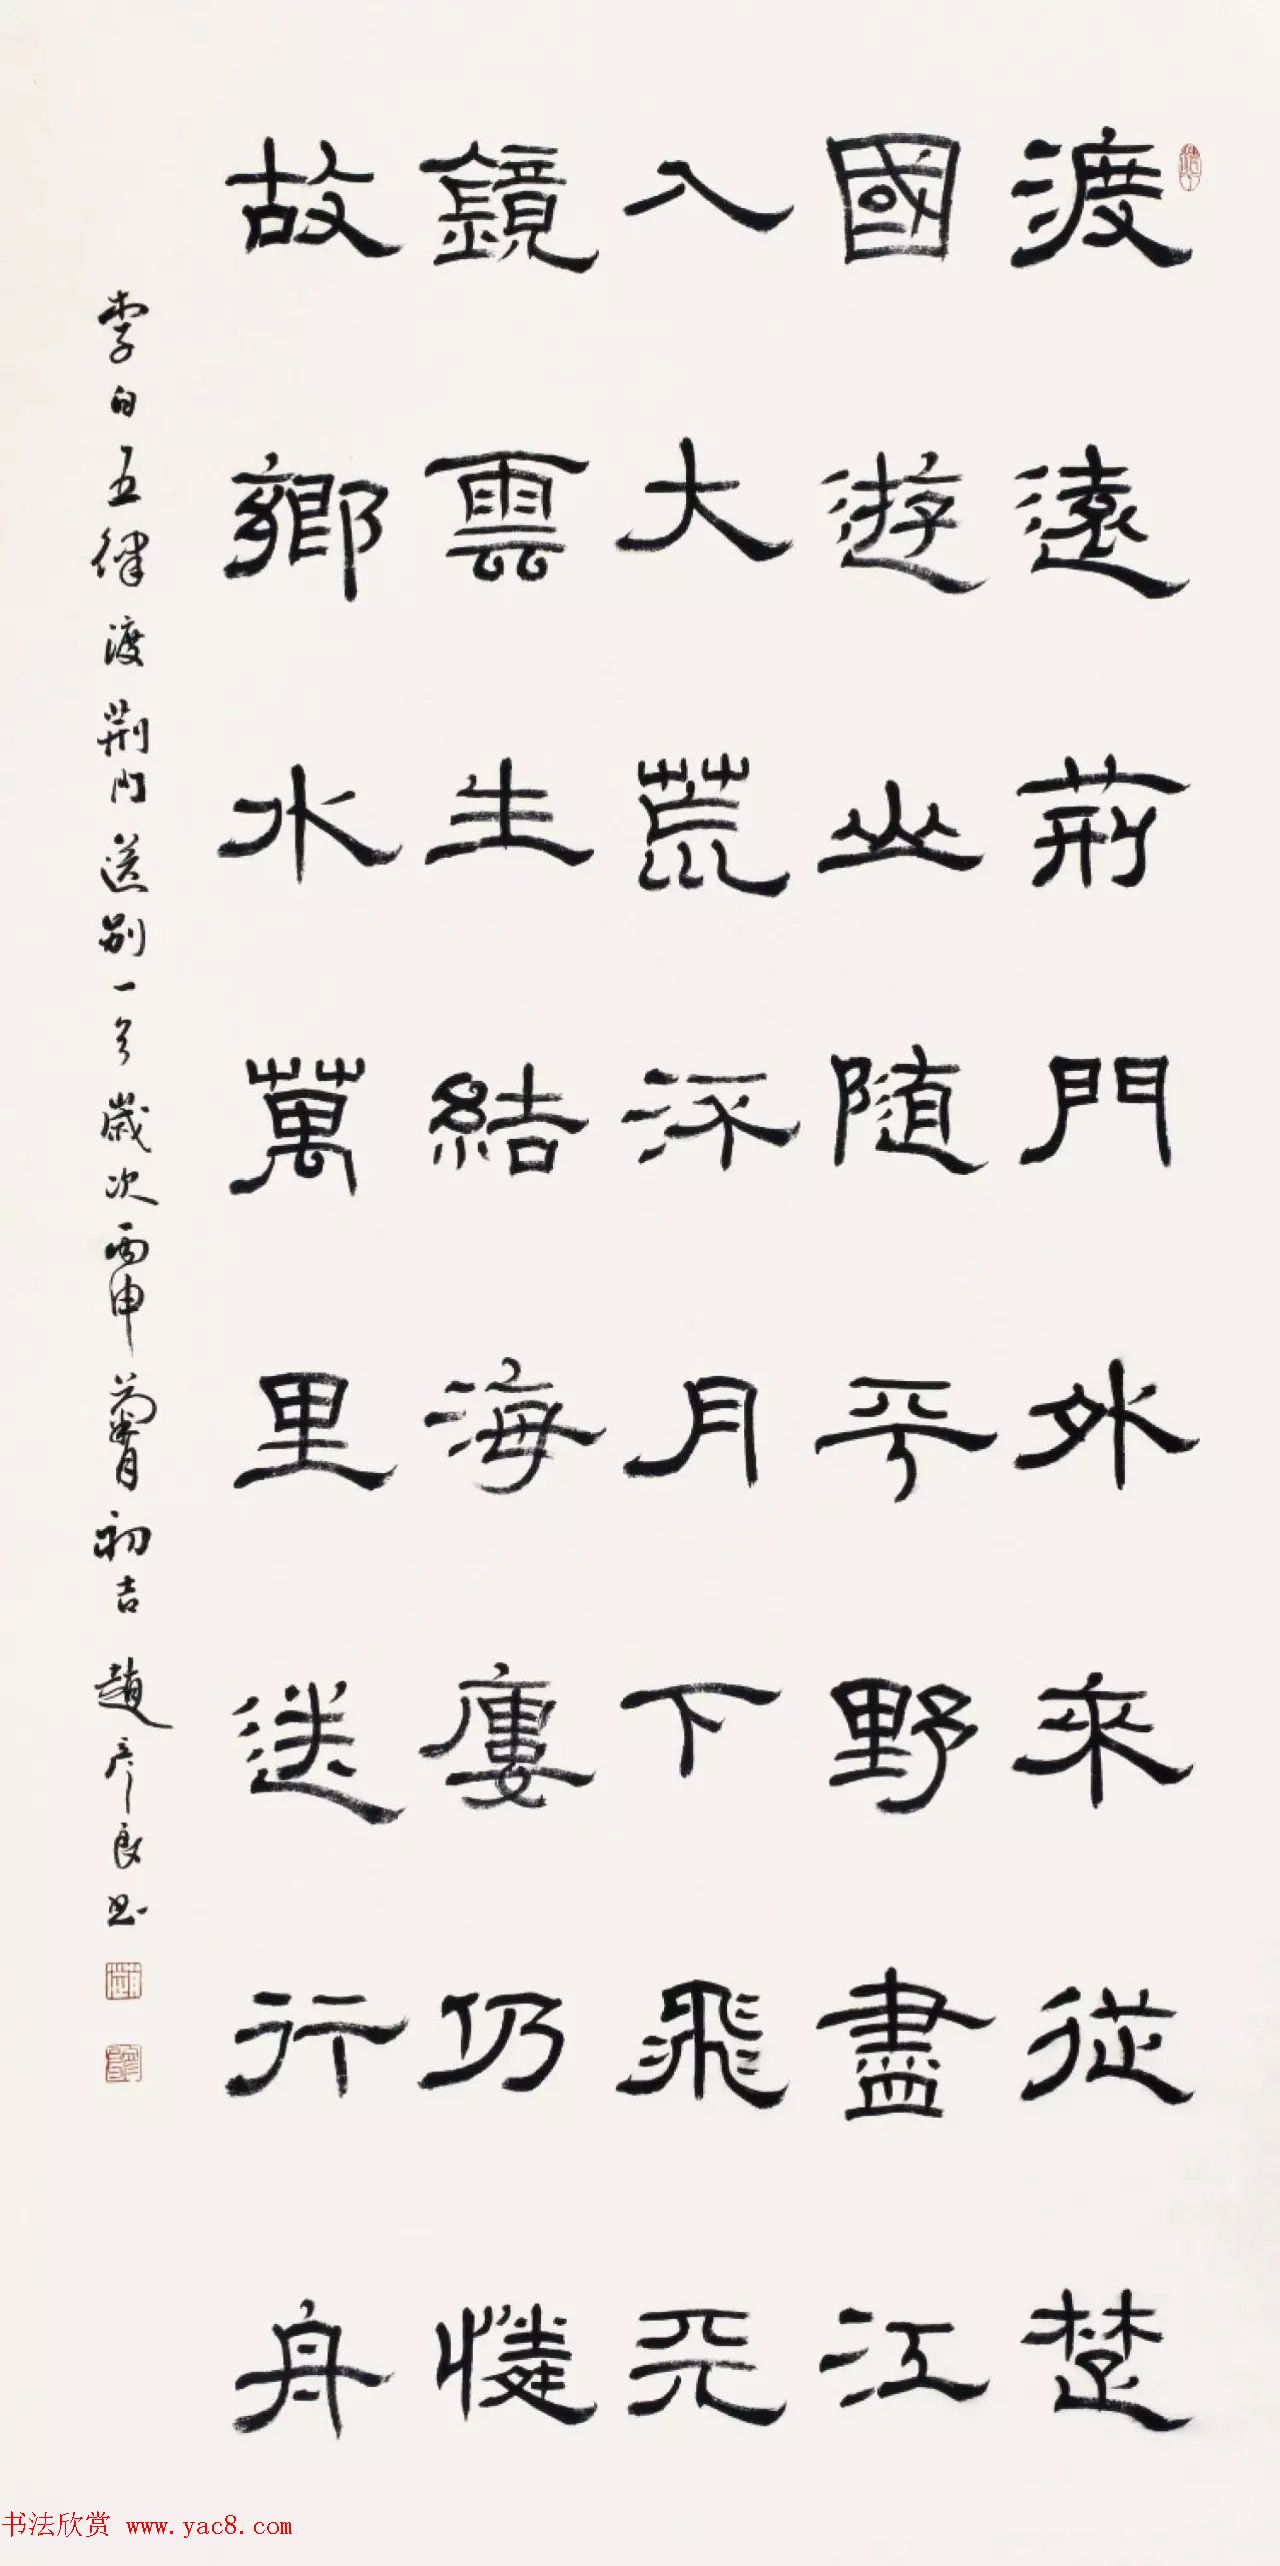 渡遠荊門外來從楚
國遊山隨平野盡江
入大荒流月下飛天
鏡雲生結海樓仍憐
故鄉水萬里送行舟
李白五律渡荆門送别一首歲次丙申菊月初吉趙彦良書
书法欣赏 www.yac8.com